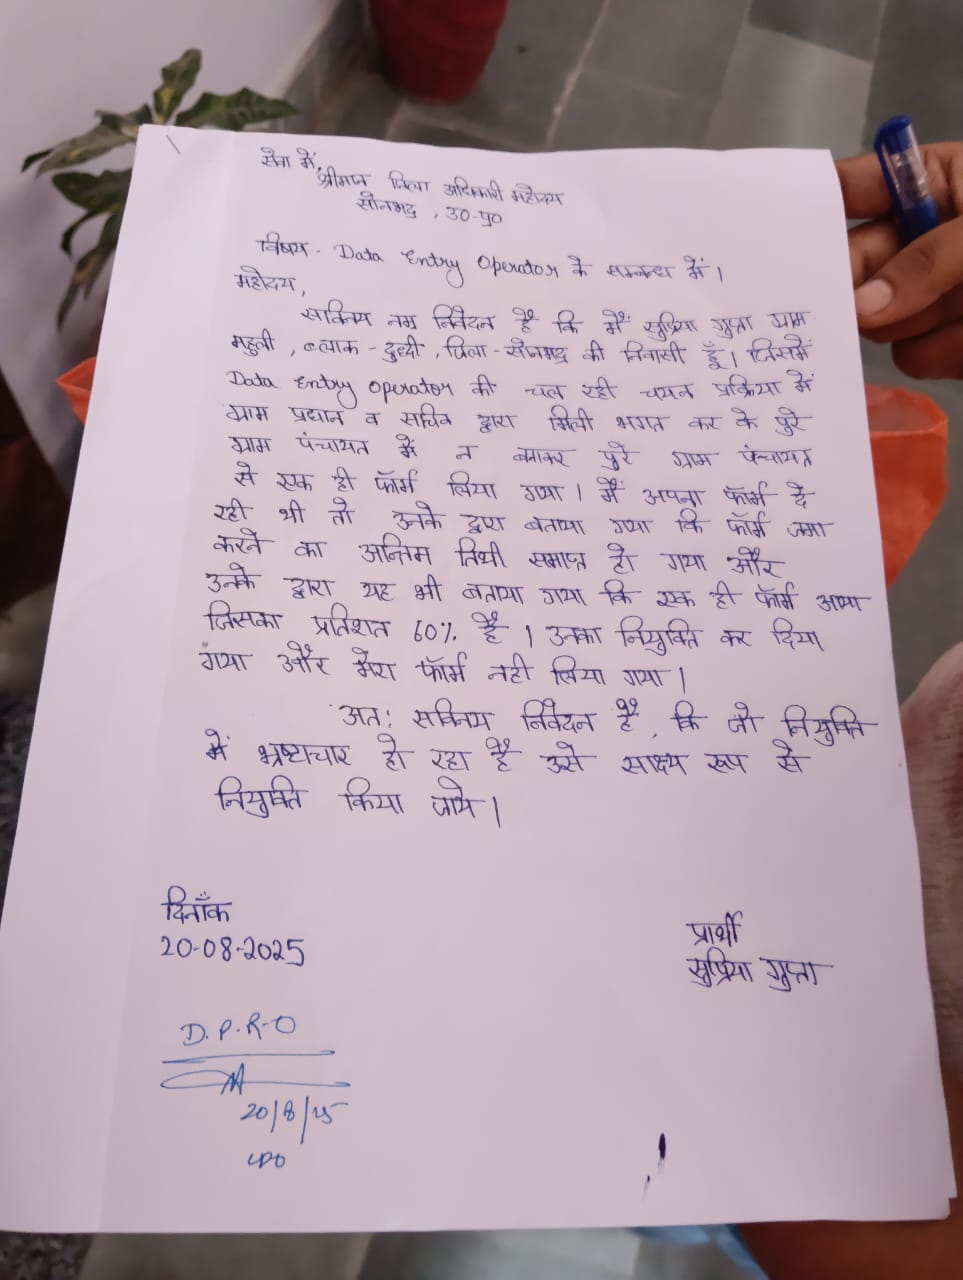 सेवा में,
श्रीमान जिला अधिकारी महोदय
सोनभद्र , उ0-प्र0
विषय - Data Entry Operator के सम्बन्ध में।
महोदय,
सविनय नम्र निवेदन है कि मैं सुप्रिया गुप्ता ग्राम
महुली , ब्लाक - दुध्दी , जिला - सोनभद्र की निवासी हूँ। जिसमें
Data Entry operator की चल रही चयन प्रक्रिया में
ग्राम प्रधान व सचिव द्वारा मिली भगत कर के पुरे
ग्राम पंचायत में न बताकर पुरे ग्राम पंचायत
से एक ही फॉर्म लिया गया। मैं अपना फॉर्म दे
रही थी तो उनके द्वारा बताया गया कि फॉर्म जमा
करने का अन्तिम तिथी समाप्त हो गया और
उनके द्वारा यह भी बताया गया कि एक ही फॉर्म आया
जिसका प्रतिशत 60% है। उनका नियुक्ति कर दिया
गया और मेरा फॉर्म नही लिया गया।
अत: सविनय निवेदन है , कि जो नियुक्ति
में भ्रष्टाचार हो रहा है उसे साक्ष्य रूप से
नियुक्ति किया जाये।
दिनाँक
20-08-2025
प्रार्थी
सुप्रिया गुप्ता
D.P.R.O
20/8/25